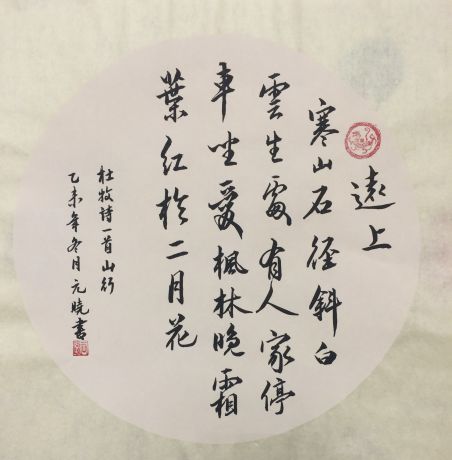 遠上
寒山石徑斜白
雲生處有人家停
車坐愛楓林晚霜
葉紅於二月花
杜牧诗一首山行
乙未年冬月元晓書